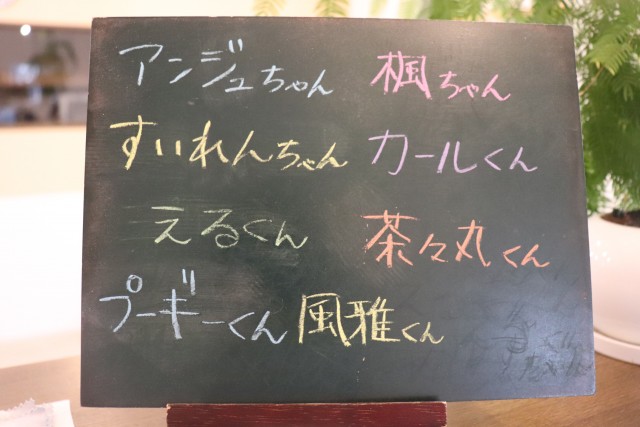 アンジュちゃん 楓ちゃん
すいれんちゃん カールくん
えるくん 茶々丸くん
プーギーくん 風雅くん